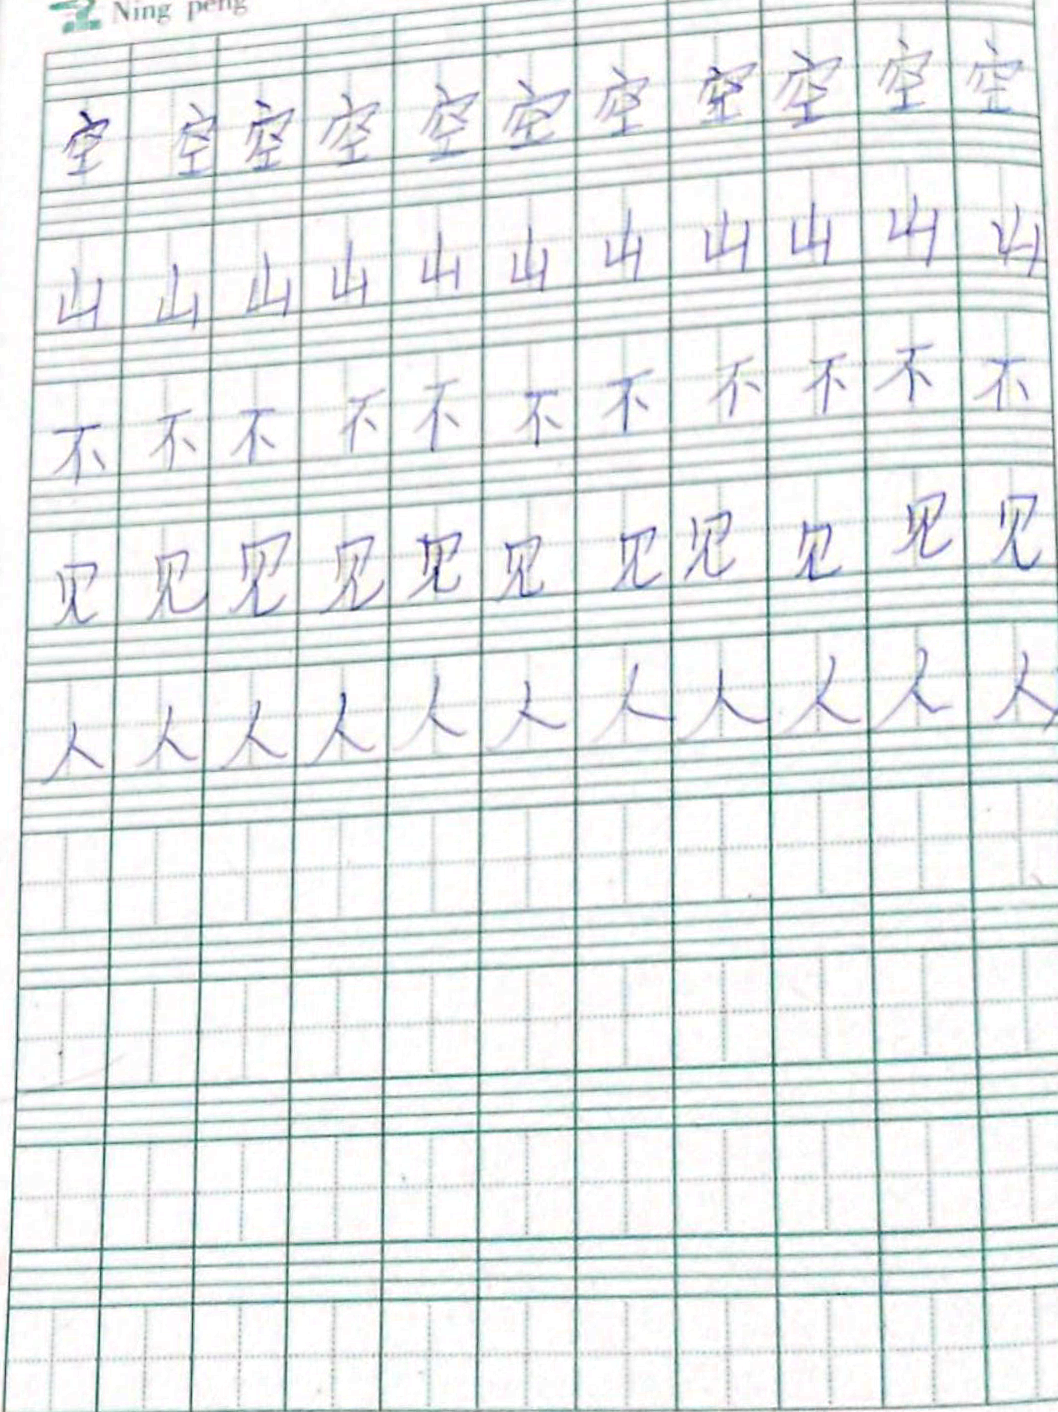 Ning peng
空空空空空空空空空空空
山山山山山山山山山山山
不不不不不不不不不不不
见见见见见见见见见见见
人人人人人人人人人人人